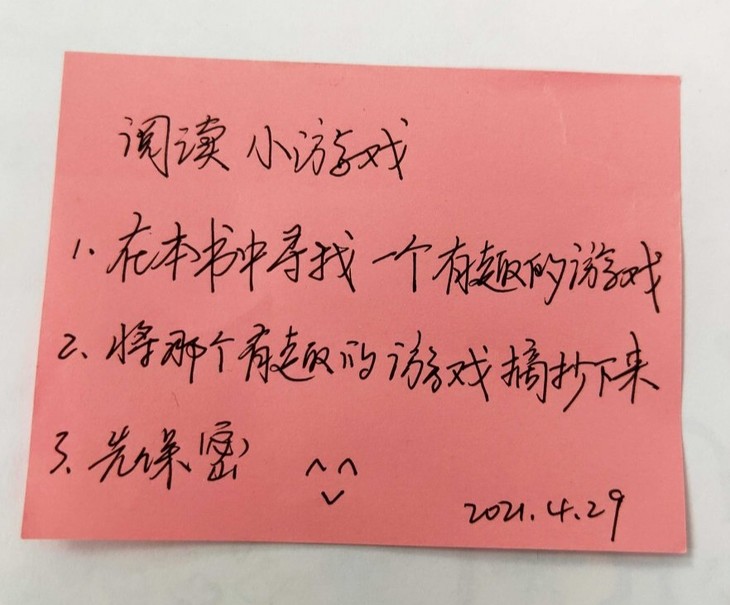 阅读 小游戏
1. 在本书中寻找 一个有趣的游戏
2、将那个有趣的游戏摘抄下来
3、先保密 ^^
2021.4.29